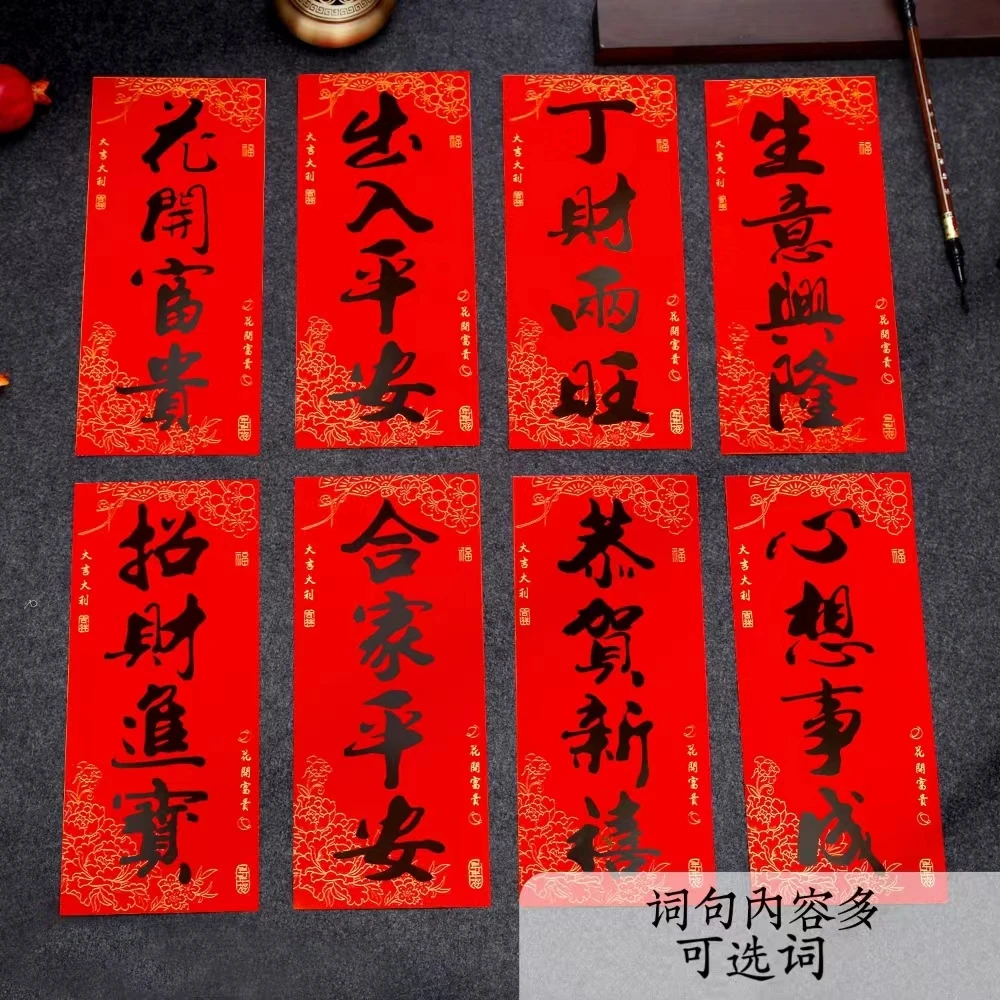 花開富貴
大吉大利
福
花開富貴
出入平安
大吉大利
福
花開富貴
丁財兩旺
大吉大利
福
花開富貴
生意興隆
大吉大利
福
花開富貴
招財進寶
大吉大利
福
花開富貴
合家平安
大吉大利
福
花開富貴
恭賀新禧
大吉大利
福
花開富貴
心想事成
大吉大利
福
花開富貴
词句内容多
可选词